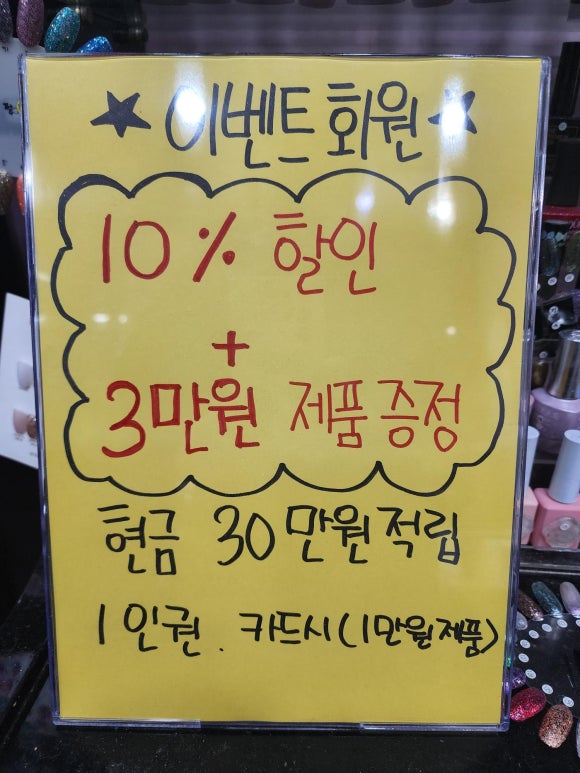 ★ 이벤트 회원 ★
10% 할인
+
3만원 제품 증정
현금 30만원 적립
1인권. 카드시(1만원 제품)